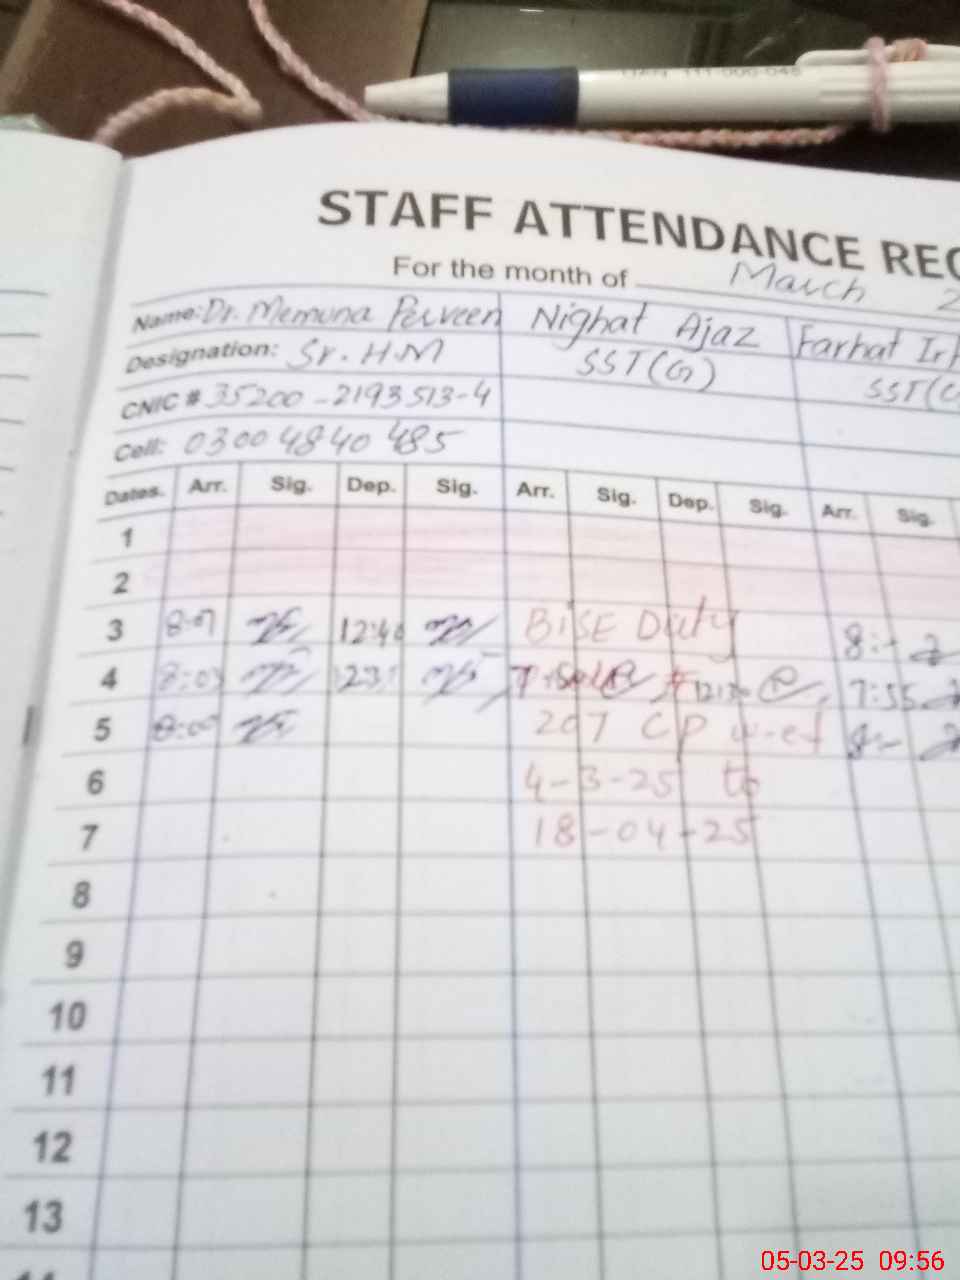 111-000-045
STAFF ATTENDANCE REC
For the month of March 2
Name: Dr. Memuna Perveen Nighat Ajaz Farhat Irf
Designation: Sr. H.M SST(G) SST(G
CNIC # 35200-2193513-4
Cell: 0300 4840 485
Dates. Arr. Sig. Dep. Sig. Arr. Sig. Dep. Sig. Arr. Sig.
1
2
3 12:40 BISE Duty 8:-
4 8:03 7:55
5 207 CP w-ef 8:-
6 4-3-25 to
7 18-04-25
8
9
10
11
12
13
05-03-25 09:56